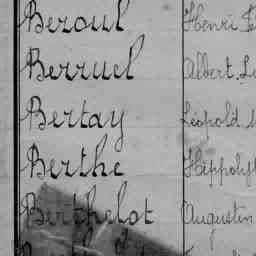 Bezoul Henri
Berruel Albert
Bertay Léopold
Berthe Hippolyte
Berthelot Augustin